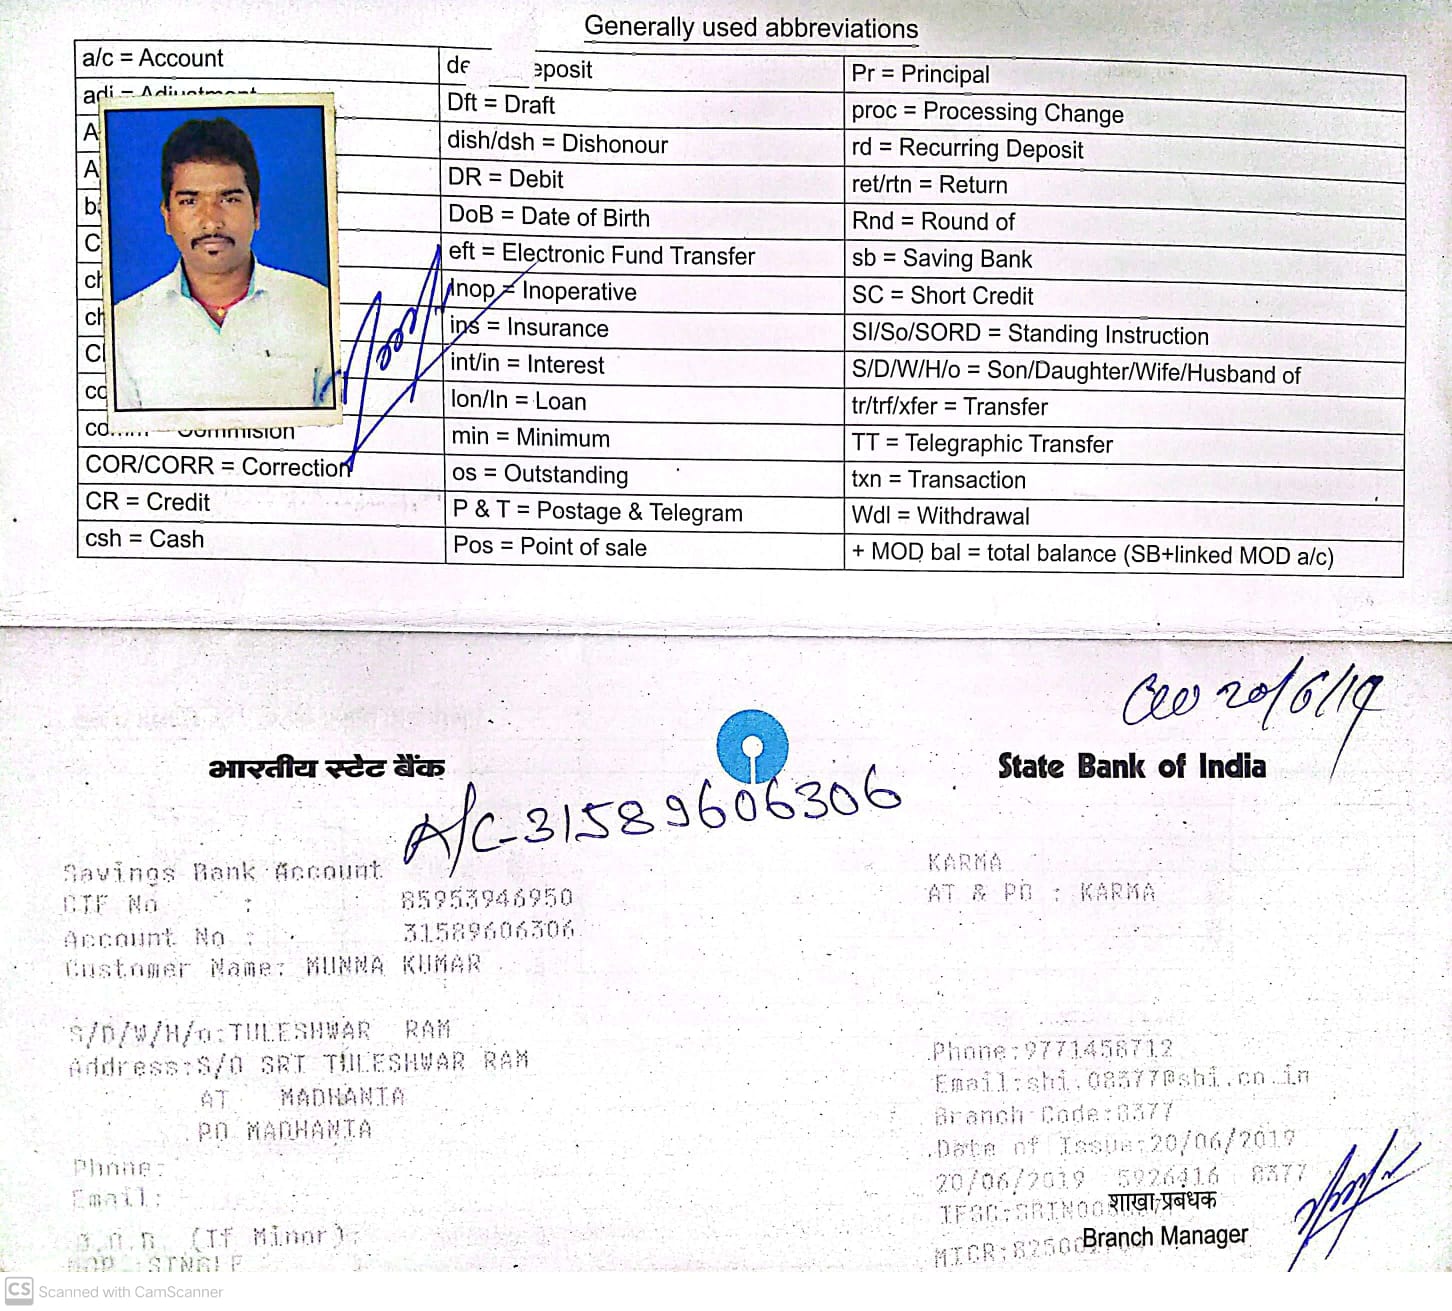 Generally used abbreviations
a/c = Account
adj = Adjustment
COR/CORR = Correction
CR = Credit
csh = Cash
eposit
Dft = Draft
dish/dsh = Dishonour
DR = Debit
DoB = Date of Birth
eft = Electronic Fund Transfer
Inop = Inoperative
ins = Insurance
int/in = Interest
lon/ln = Loan
min = Minimum
os = Outstanding
P & T = Postage & Telegram
Pos = Point of sale
Pr = Principal
proc = Processing Change
rd = Recurring Deposit
ret/rtn = Return
Rnd = Round of
sb = Saving Bank
SC = Short Credit
SI/So/SORD = Standing Instruction
S/D/W/H/o = Son/Daughter/Wife/Husband of
tr/trf/xfer = Transfer
TT = Telegraphic Transfer
txn = Transaction
Wdl = Withdrawal
+ MOD bal = total balance (SB+linked MOD a/c)
20/6/19
भारतीय स्टेट बैंक
State Bank of India
A/C-31589606306
Savings Bank Account
CIF No : 85953946950
Account No : 31589606306
Customer Name: MUNNA KUMAR
S/D/W/H/o:TULESHWAR RAM
Address:S/O SRI TULESHWAR RAM
AT MADHANIA
PO MADHANIA
Phone:
Email:
D.O.B (If Minor):
MOP :SINGLE
KARMA
AT & PO : KARMA
Phone:9771458712
Email:sbi.08377@sbi.co.in
Branch Code:8377
Date of Issue:20/06/2019
20/06/2019 5926416 8377
शाखा-प्रबंधक
Branch Manager
CS Scanned with CamScanner